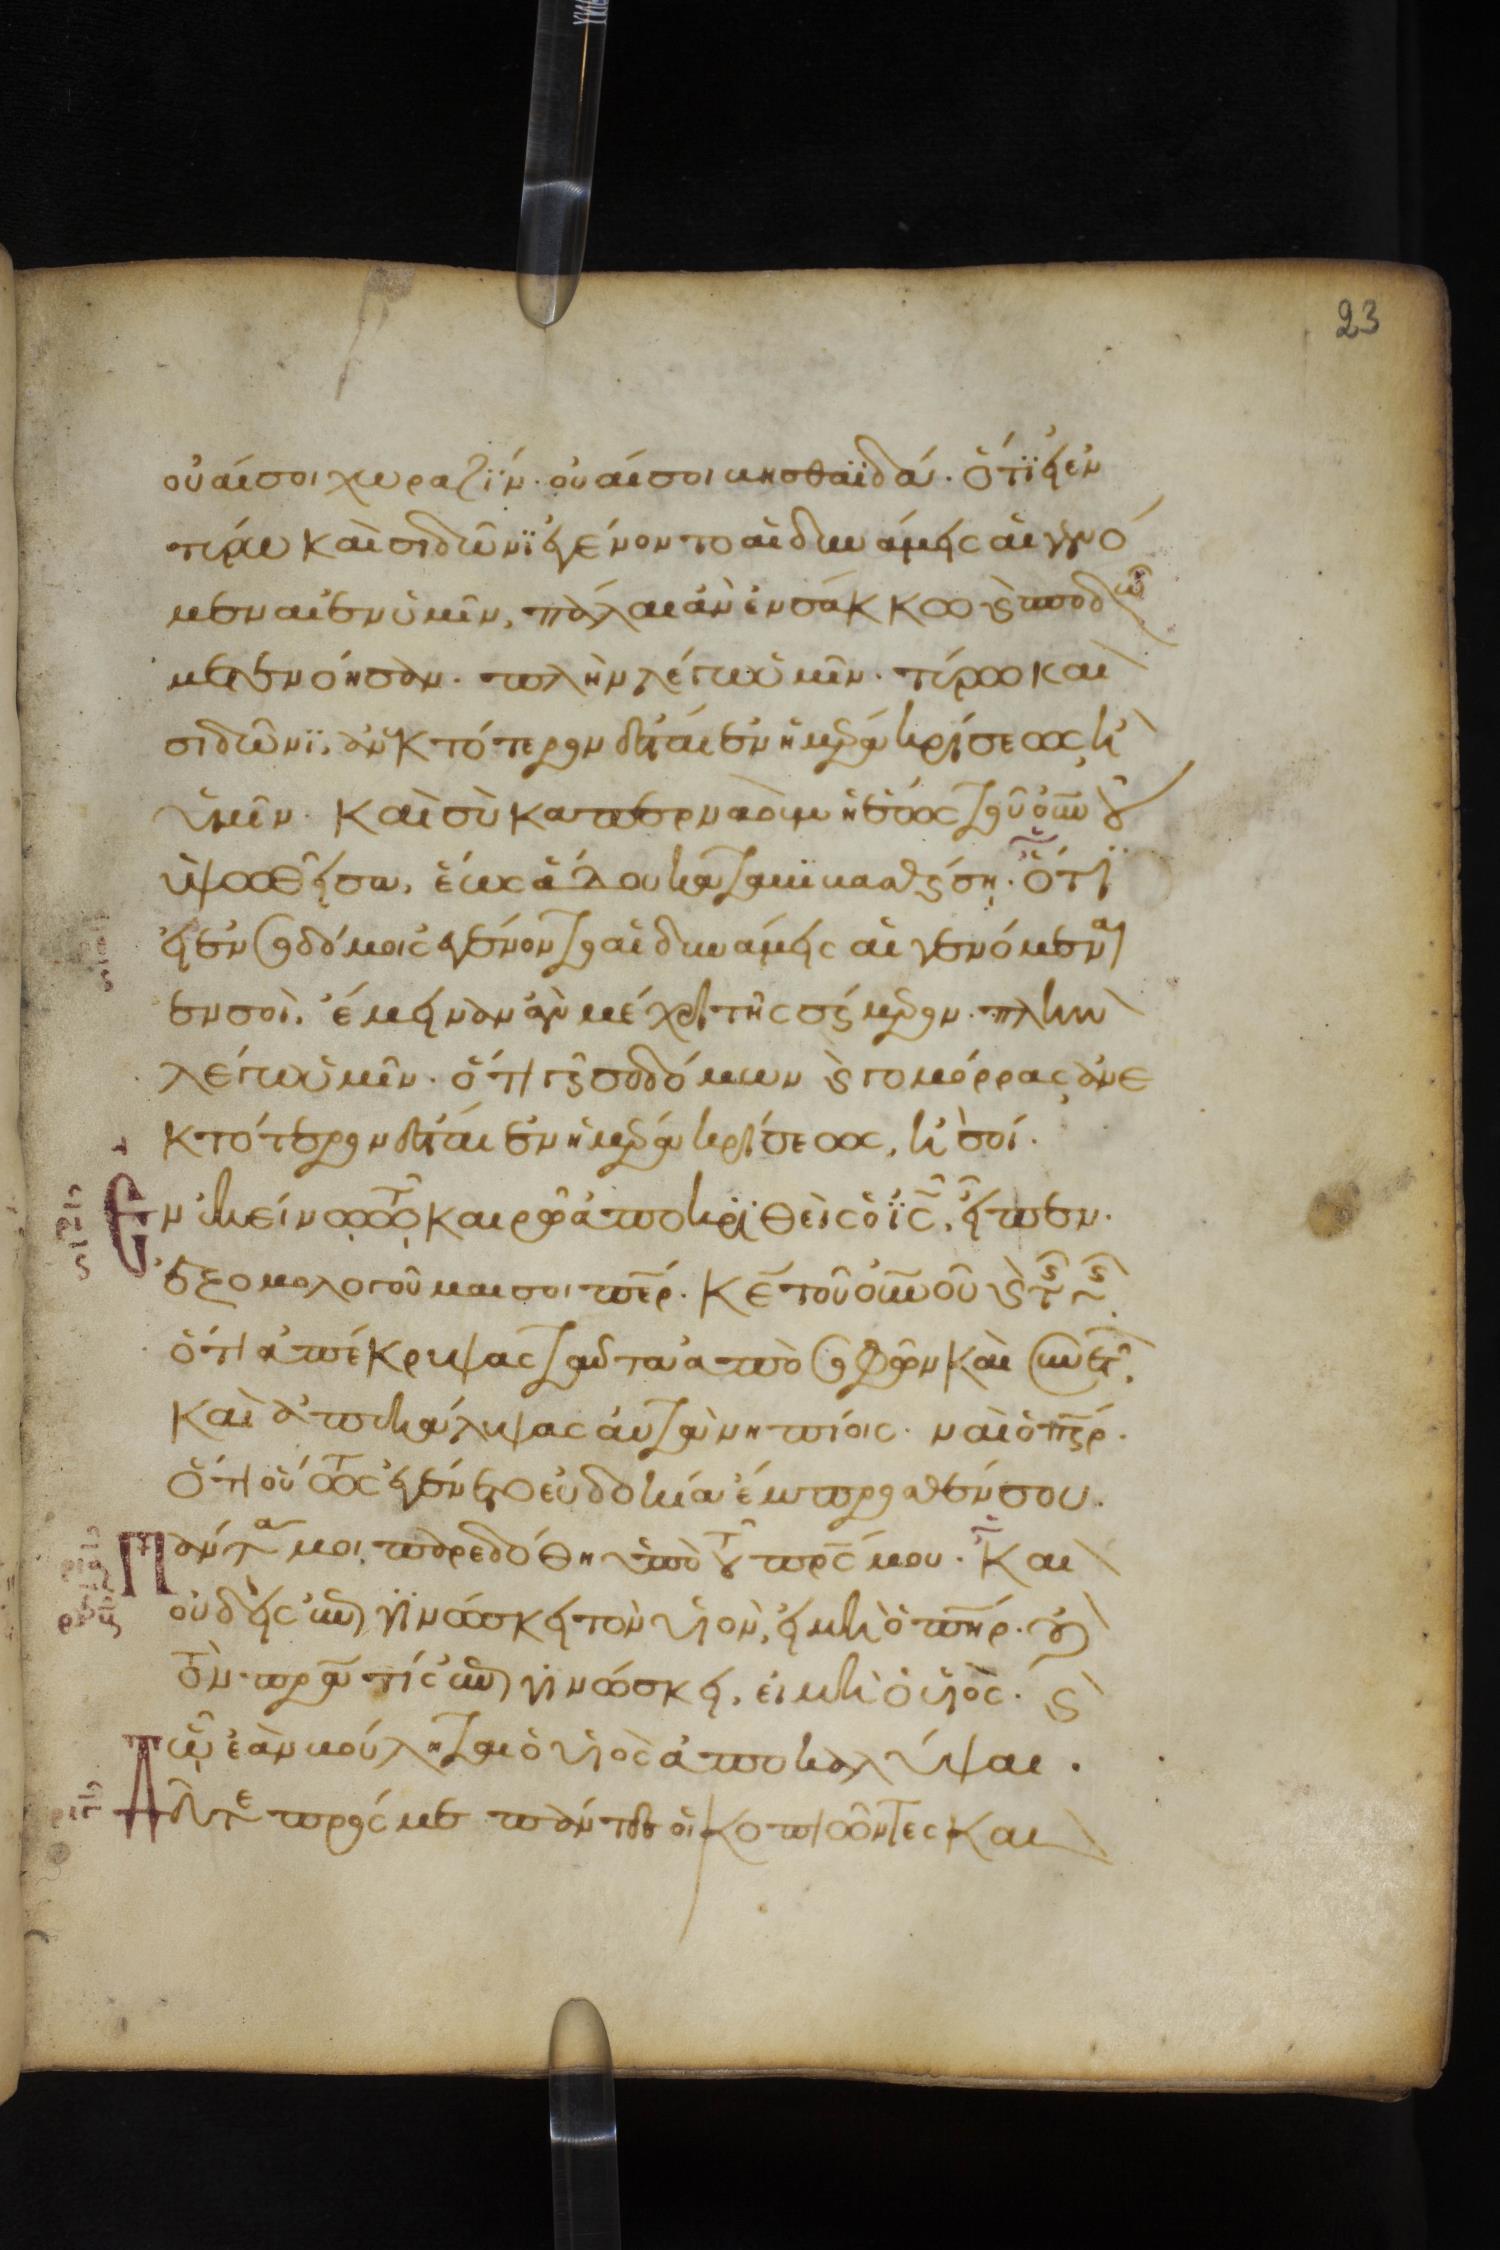 23
οὐαί σοι χωραζΐν· οὐαί σοι βηθσαϊδά· ὅτϊ εἰ ἐν
τύρω καὶ σιδῶνϊ ἐγένοντο αἱ δυνάμεις αἱ γενό
μεναι ἐν ὑμῖν, πάλαι ἂν ἐν σάκκω κ σποδῶ
μετενόησαν. πλὴν λέγω ὑμῖν· τύρω και
σιδῶνϊ, ἀνεκτότερον ἔσται ἐν ἡμέρα κρίσεως ἢ
ὑμῖν· καὶ σὺ καπερναοὺμ ἡ ἕως τοῦ οὐνοῦ
ὑψωθεῖσα, ἕως ἅδου καταβιβασθήση· ὅτι
εἰ ἐν σοδόμοις ἐγένοντο αἱ δυνάμεις αἱ γενόμεναι
ἐν σοὶ, ἔμειναν ἂν μέχρι τῆς σήμερον· πλὴν
λέγω ὑμῖν· ὅτι γῆ σοδόμων κ γομόρρας ἀνε
κτότερον ἔσται ἐν ἡμέρα κρίσεως, ἢ σοί.
Ἐν ἐκείνω τῶ καιρῶ ἀποκριθεὶς ὁ ϊς, εἶπεν·
ἐξομολογοῦμαι σοι περ· κε τοῦ οὐνοῦ κ τῆς γῆς
ὅτι ἀπέκρυψας ταῦτα ἀπὸ σοφῶν καὶ συνετῶν,
καὶ ἀπεκάλυψας αὐτὰ νηπίοις· ναὶ ὁ πηρ·
ὅτι οὕτως ἐγένετο εὐδοκία ἔμπροσθέν σου.
Πάντα μοι παρεδόθη ὑπὸ τοῦ πρς μου· και
οὐδεὶς ἐπιγινώσκει τὸν υἱὸν, εἰ μὴ ὁ πηρ· οὐδὲ
τὸν πρα τίς ἐπιγινώσκει, εἰ μὴ ὁ υἱὸς· κ
ᾧ ἐὰν βούληται ὁ υἱὸς ἀποκαλύψαι.
Δεῦτε πρός με πάντες οἱ κοπιῶντες και